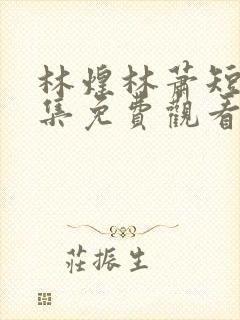 林煌林蕭短
集免費觀看
莊振生